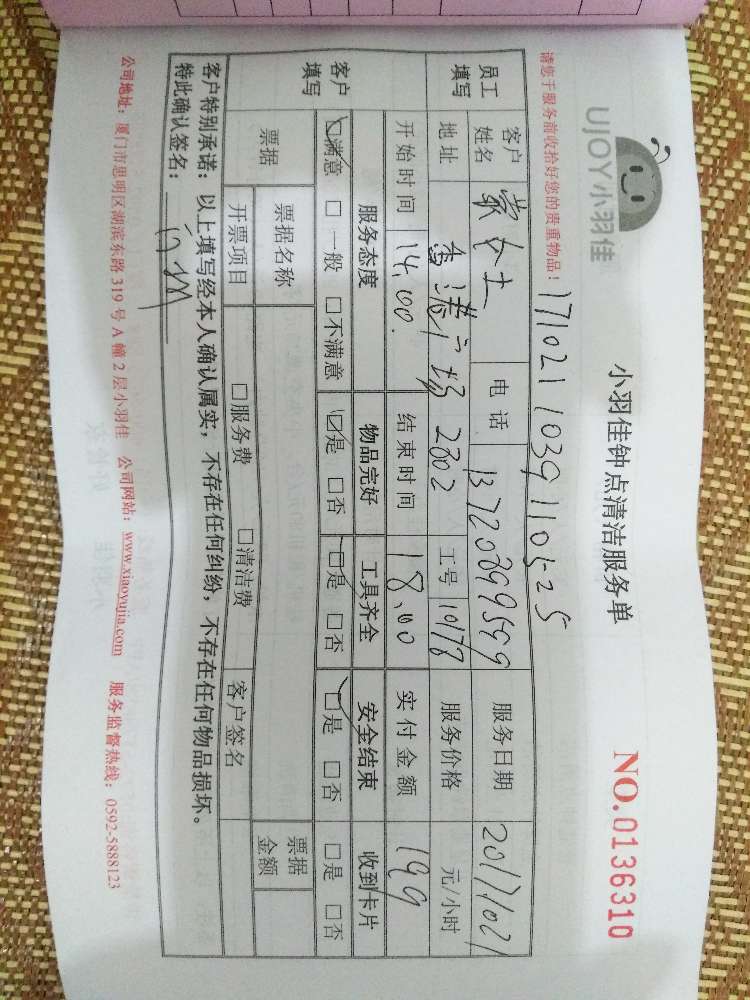 UJOY小羽佳
小羽佳钟点清洁服务单
NO.0136310
请您于服务前收拾好您的贵重物品！
1710211039110525
员工填写
客户姓名 女士 电话 13720899599 服务日期 20171021
地址 香港广场2302 工号 10178 服务价格 元/小时
开始时间 14.00. 结束时间 18.00 实付金额 199
客户填写
服务态度 物品完好 工具齐全 安全结束 收到卡片
☑满意 □一般 □不满意 ☑是 □否 ☑是 □否 ☑是 □否 □是 □否
票据 票据名称 票据金额
开票项目 □服务费 □清洁费 客户签名
客户特别承诺：以上填写经本人确认属实，不存在任何纠纷，不存在任何物品损坏。
特此确认签名：
公司地址：厦门市思明区湖滨东路319号A幢2层小羽佳 公司网站：www.xiaoyujia.com 服务监督热线：0592-5888123